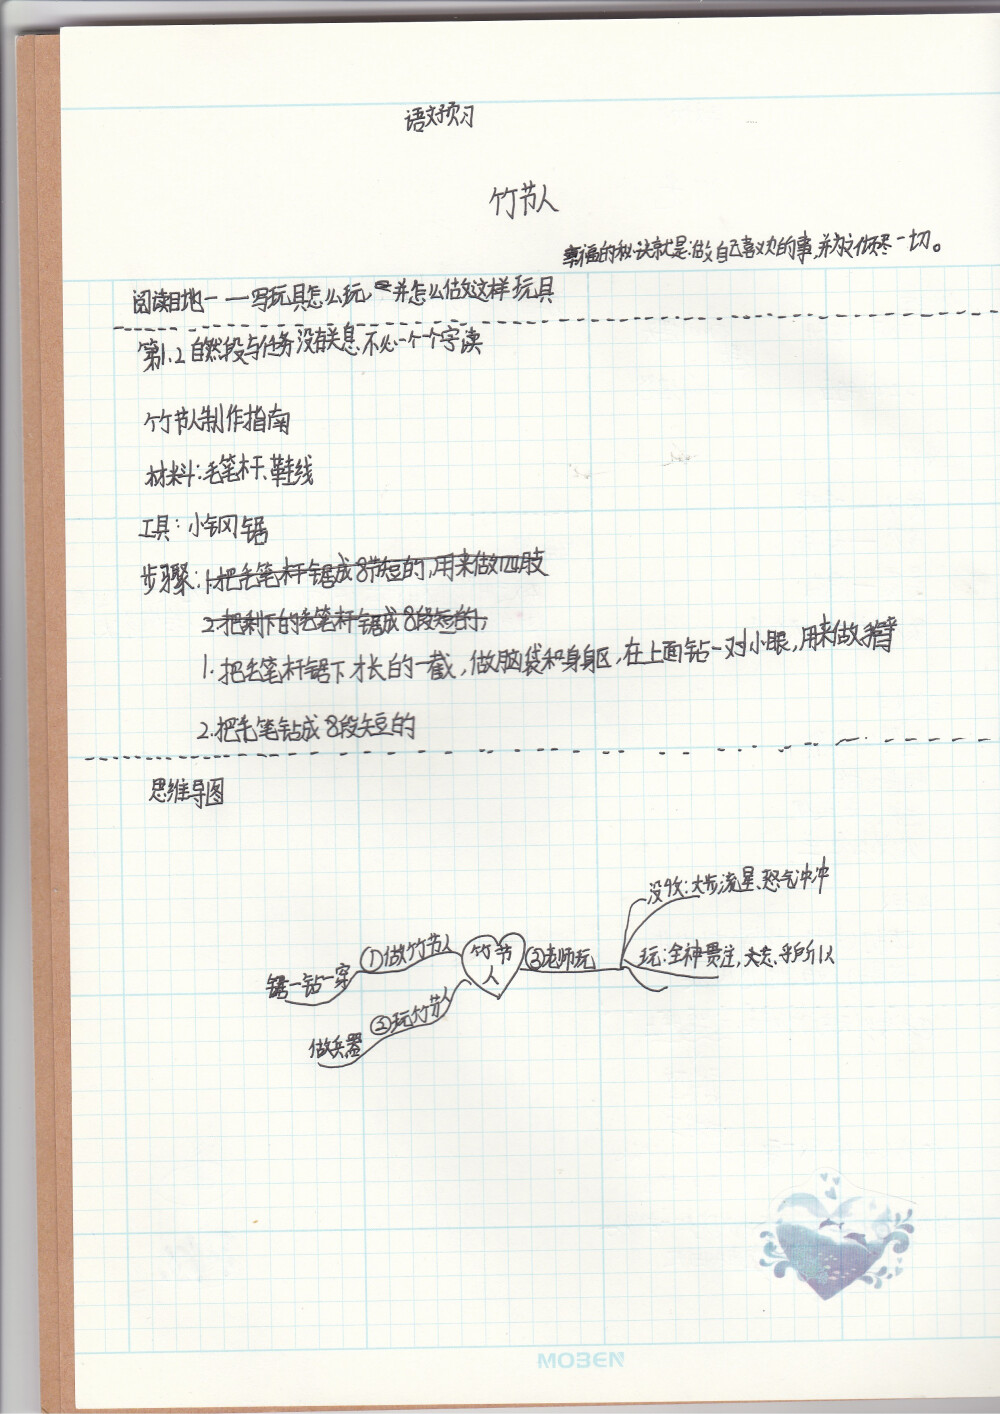 语文预习
竹节人
幸福的秘诀就是:做自己喜欢的事,并为之倾尽一切。
阅读目地一——写玩具怎么玩,并怎么做这样玩具
第1.2自然段与任务没有关息,不必一个一个字读
竹节人制作指南
材料:毛笔杆、鞋线
工具:小钢锯
步骤:1.把毛笔杆锯成8节短的,用来做四肢
2.把剩下的毛笔杆锯成8段短的;
1.把毛笔杆锯下才长的一截,做脑袋和身身区,在上面钻一对小眼,用来做手臂
2.把毛笔钻成8段短的
思维导图
没收:大步流星、怒气冲冲
①做竹节人
竹节人
③老师玩
玩:全神贯注,忘乎所以
锯一钻一穿
②玩竹节人
做兵器
MOBEN